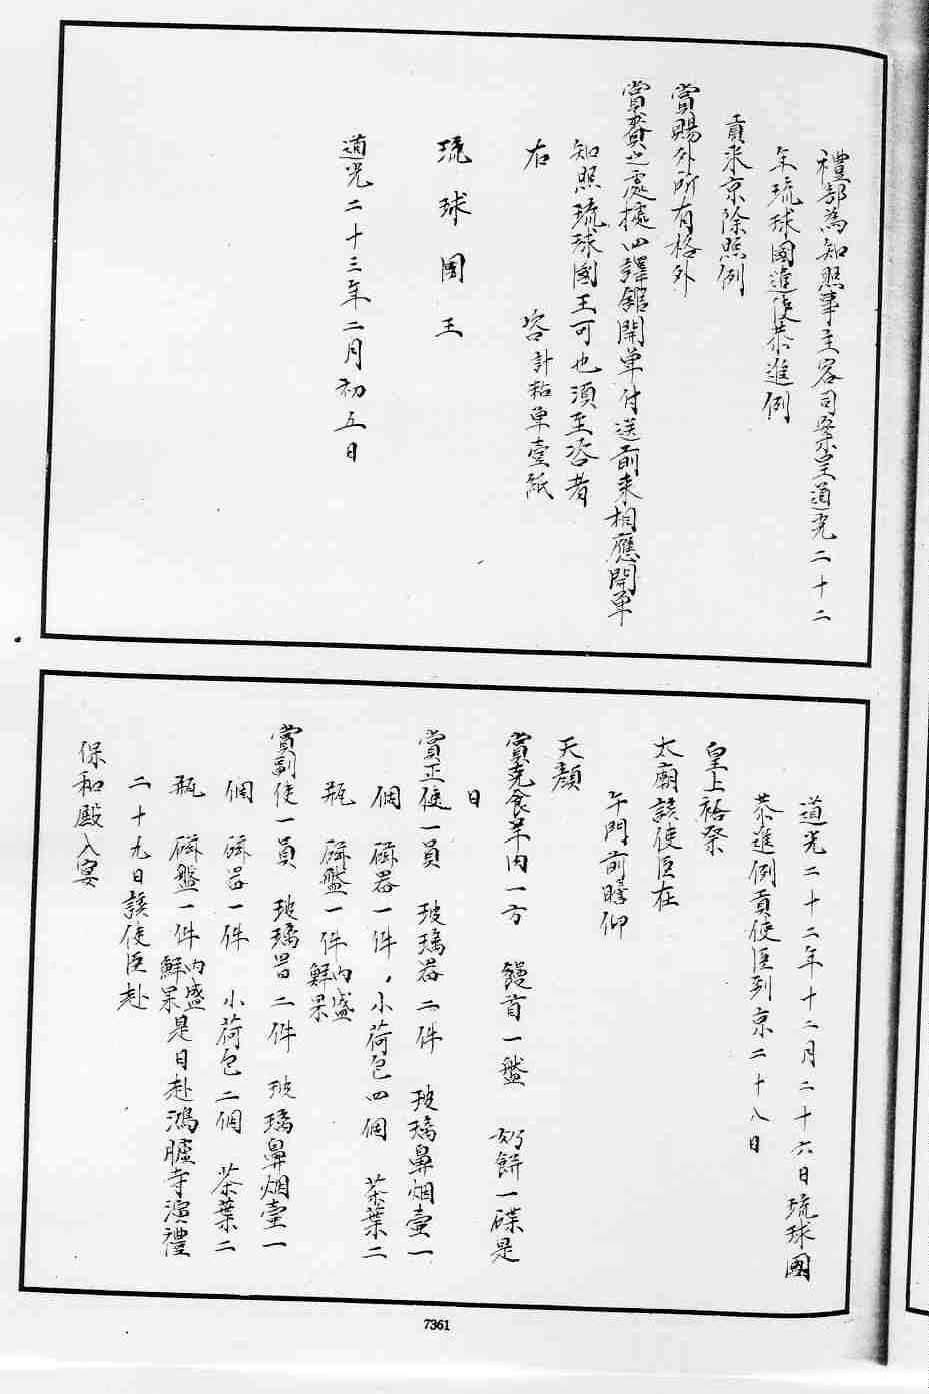 禮部為知照事主客司案呈道光二十二
年琉球國遣使恭進例
貢來京除照例
賞賜外所有格外
賞賚之處據四譯館開单付送前來相應開单
知照琉球國王可也須至咨者
右 咨計粘单壹紙
琉球國王
道光二十三年二月初五日
道光二十二年十二月二十六日琉球國
恭進例貢使臣到京二十八日
皇上祫祭
太廟該使臣在
午門前瞻仰
天顏
賞克食羊肉一方 饅首一盤 奶餅一碟是
日
賞正使一員 玻璃器二件 玻璃鼻烟壺一
個 磁器一件 小荷包四個 茶葉二
瓶 磁盤一件內盛鮮果
賞副使一員 玻璃器二件 玻璃鼻烟壺一
個 磁器一件 小荷包二個 茶葉二
瓶 磁盤一件內盛鮮果是日赴鴻臚寺演禮
二十九日該使臣赴
保和殿入宴
7361